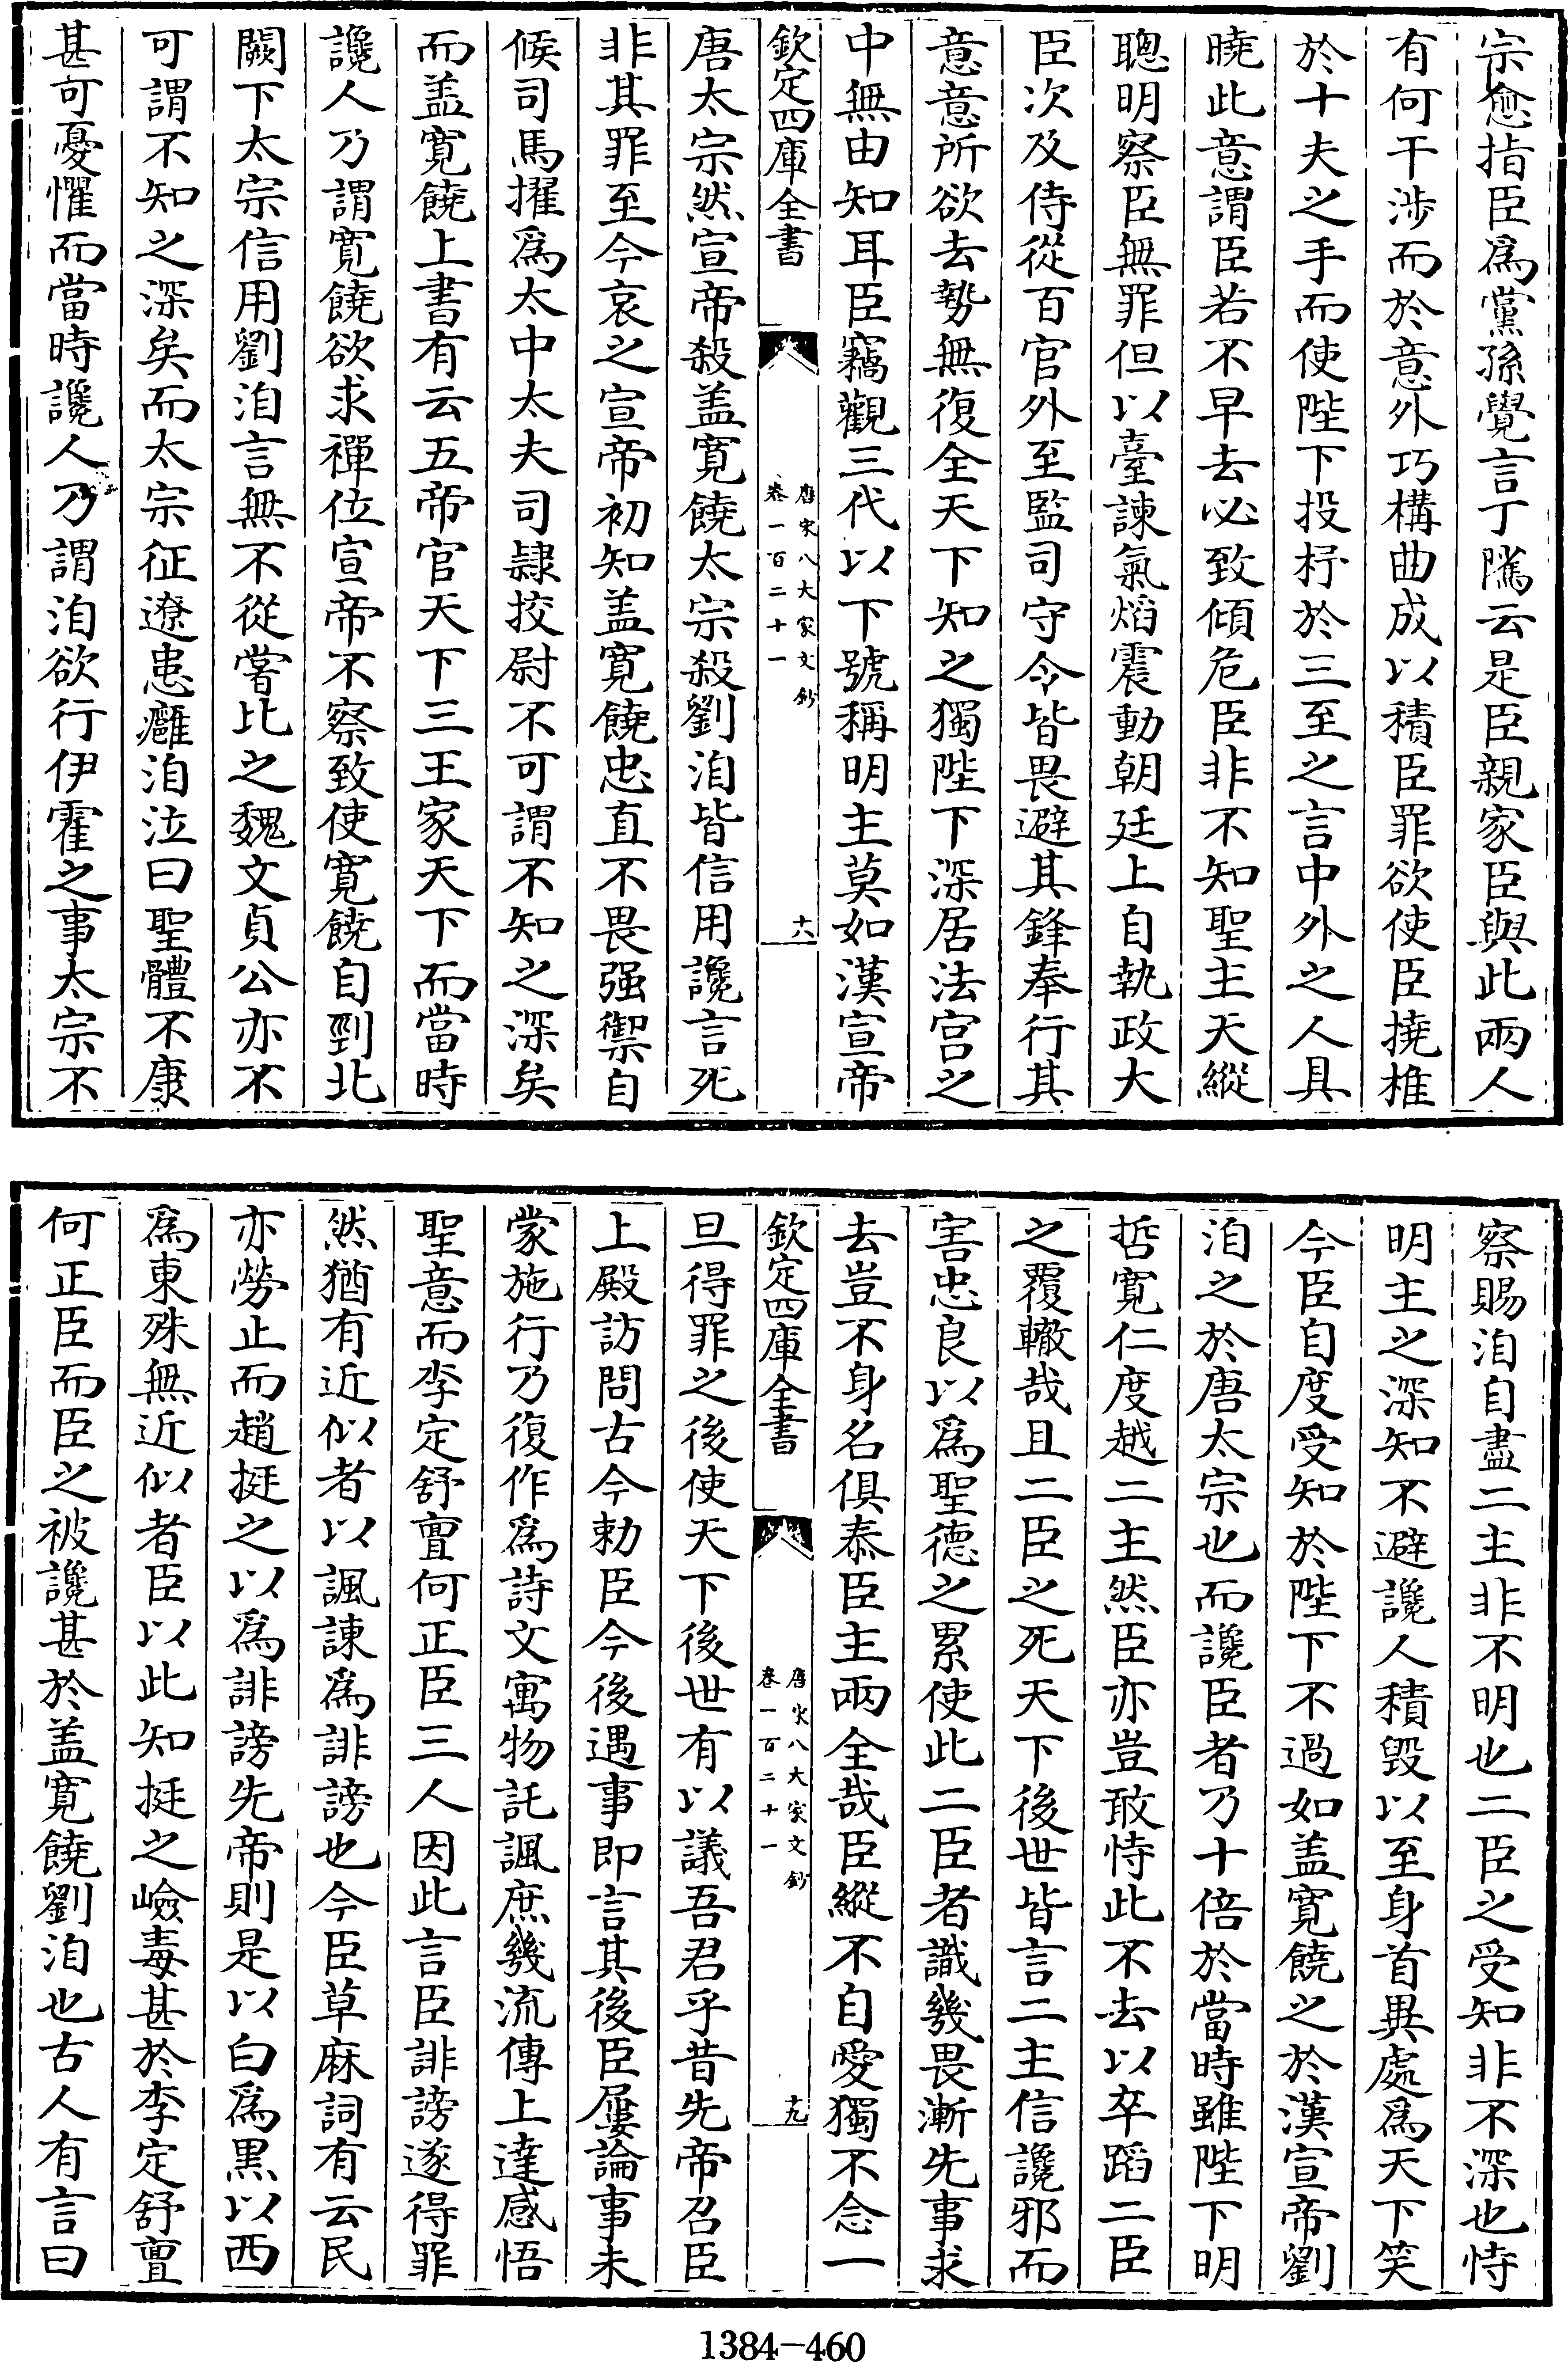 宗愈指臣爲黨孫覺言丁隲云是臣親家臣與此兩人
有何干涉而於意外巧構曲成以積臣罪欲使臣撓椎
於十夫之手而使陛下投杼於三至之言中外之人具
曉此意謂臣若不早去必致傾危臣非不知聖主天縱
聰明察臣無罪但以臺諫氣焰震動朝廷上自執政大
臣次及侍從百官外至監司守令皆畏避其鋒奉行其
意意所欲去勢無復全天下知之獨陛下深居法宫之
中無由知耳臣竊觀三代以下號稱明主莫如漢宣帝
欽定四庫全書
唐宋八大家文鈔
卷一百二十一
十八
唐太宗然宣帝殺盖寛饒太宗殺劉洎皆信用讒言死
非其罪至今哀之宣帝初知盖寛饒忠直不畏强禦自
候司馬擢爲太中太夫司隸挍尉不可謂不知之深矣
而盖寛饒上書有云五帝官天下三王家天下而當時
讒人乃謂寛饒欲求禪位宣帝不察致使寛饒自剄北
闕下太宗信用劉洎言無不從嘗比之魏文貞公亦不
可謂不知之深矣而太宗征遼患癰洎泣曰聖體不康
甚可憂懼而當時讒人乃謂洎欲行伊霍之事太宗不
察賜洎自盡二主非不明也二臣之受知非不深也恃
明主之深知不避讒人積毀以至身首異處爲天下笑
今臣自度受知於陛下不過如盖寛饒之於漢宣帝劉
洎之於唐太宗也而讒臣者乃十倍於當時雖陛下明
哲寛仁度越二主然臣亦豈敢恃此不去以卒蹈二臣
之覆轍哉且二臣之死天下後世皆言二主信讒邪而
害忠良以爲聖德之累使此二臣者識幾畏漸先事求
去豈不身名俱泰臣主兩全哉臣縱不自愛獨不念一
欽定四庫全書
唐宋八大家文鈔
卷一百二十一
十九
旦得罪之後使天下後世有以議吾君乎昔先帝召臣
上殿訪問古今勅臣今後遇事即言其後臣屢論事未
蒙施行乃復作爲詩文寓物託諷庶幾流傳上達感悟
聖意而李定舒亶何正臣三人因此言臣誹謗遂得罪
然猶有近似者以諷諌爲誹謗也今臣草麻詞有云民
亦勞止而趙挺之以爲誹謗先帝則是以白爲黒以西
爲東殊無近似者臣以此知挺之嶮毒甚於李定舒亶
何正臣而臣之被讒甚於盖寛饒劉洎也古人有言曰
1384-460